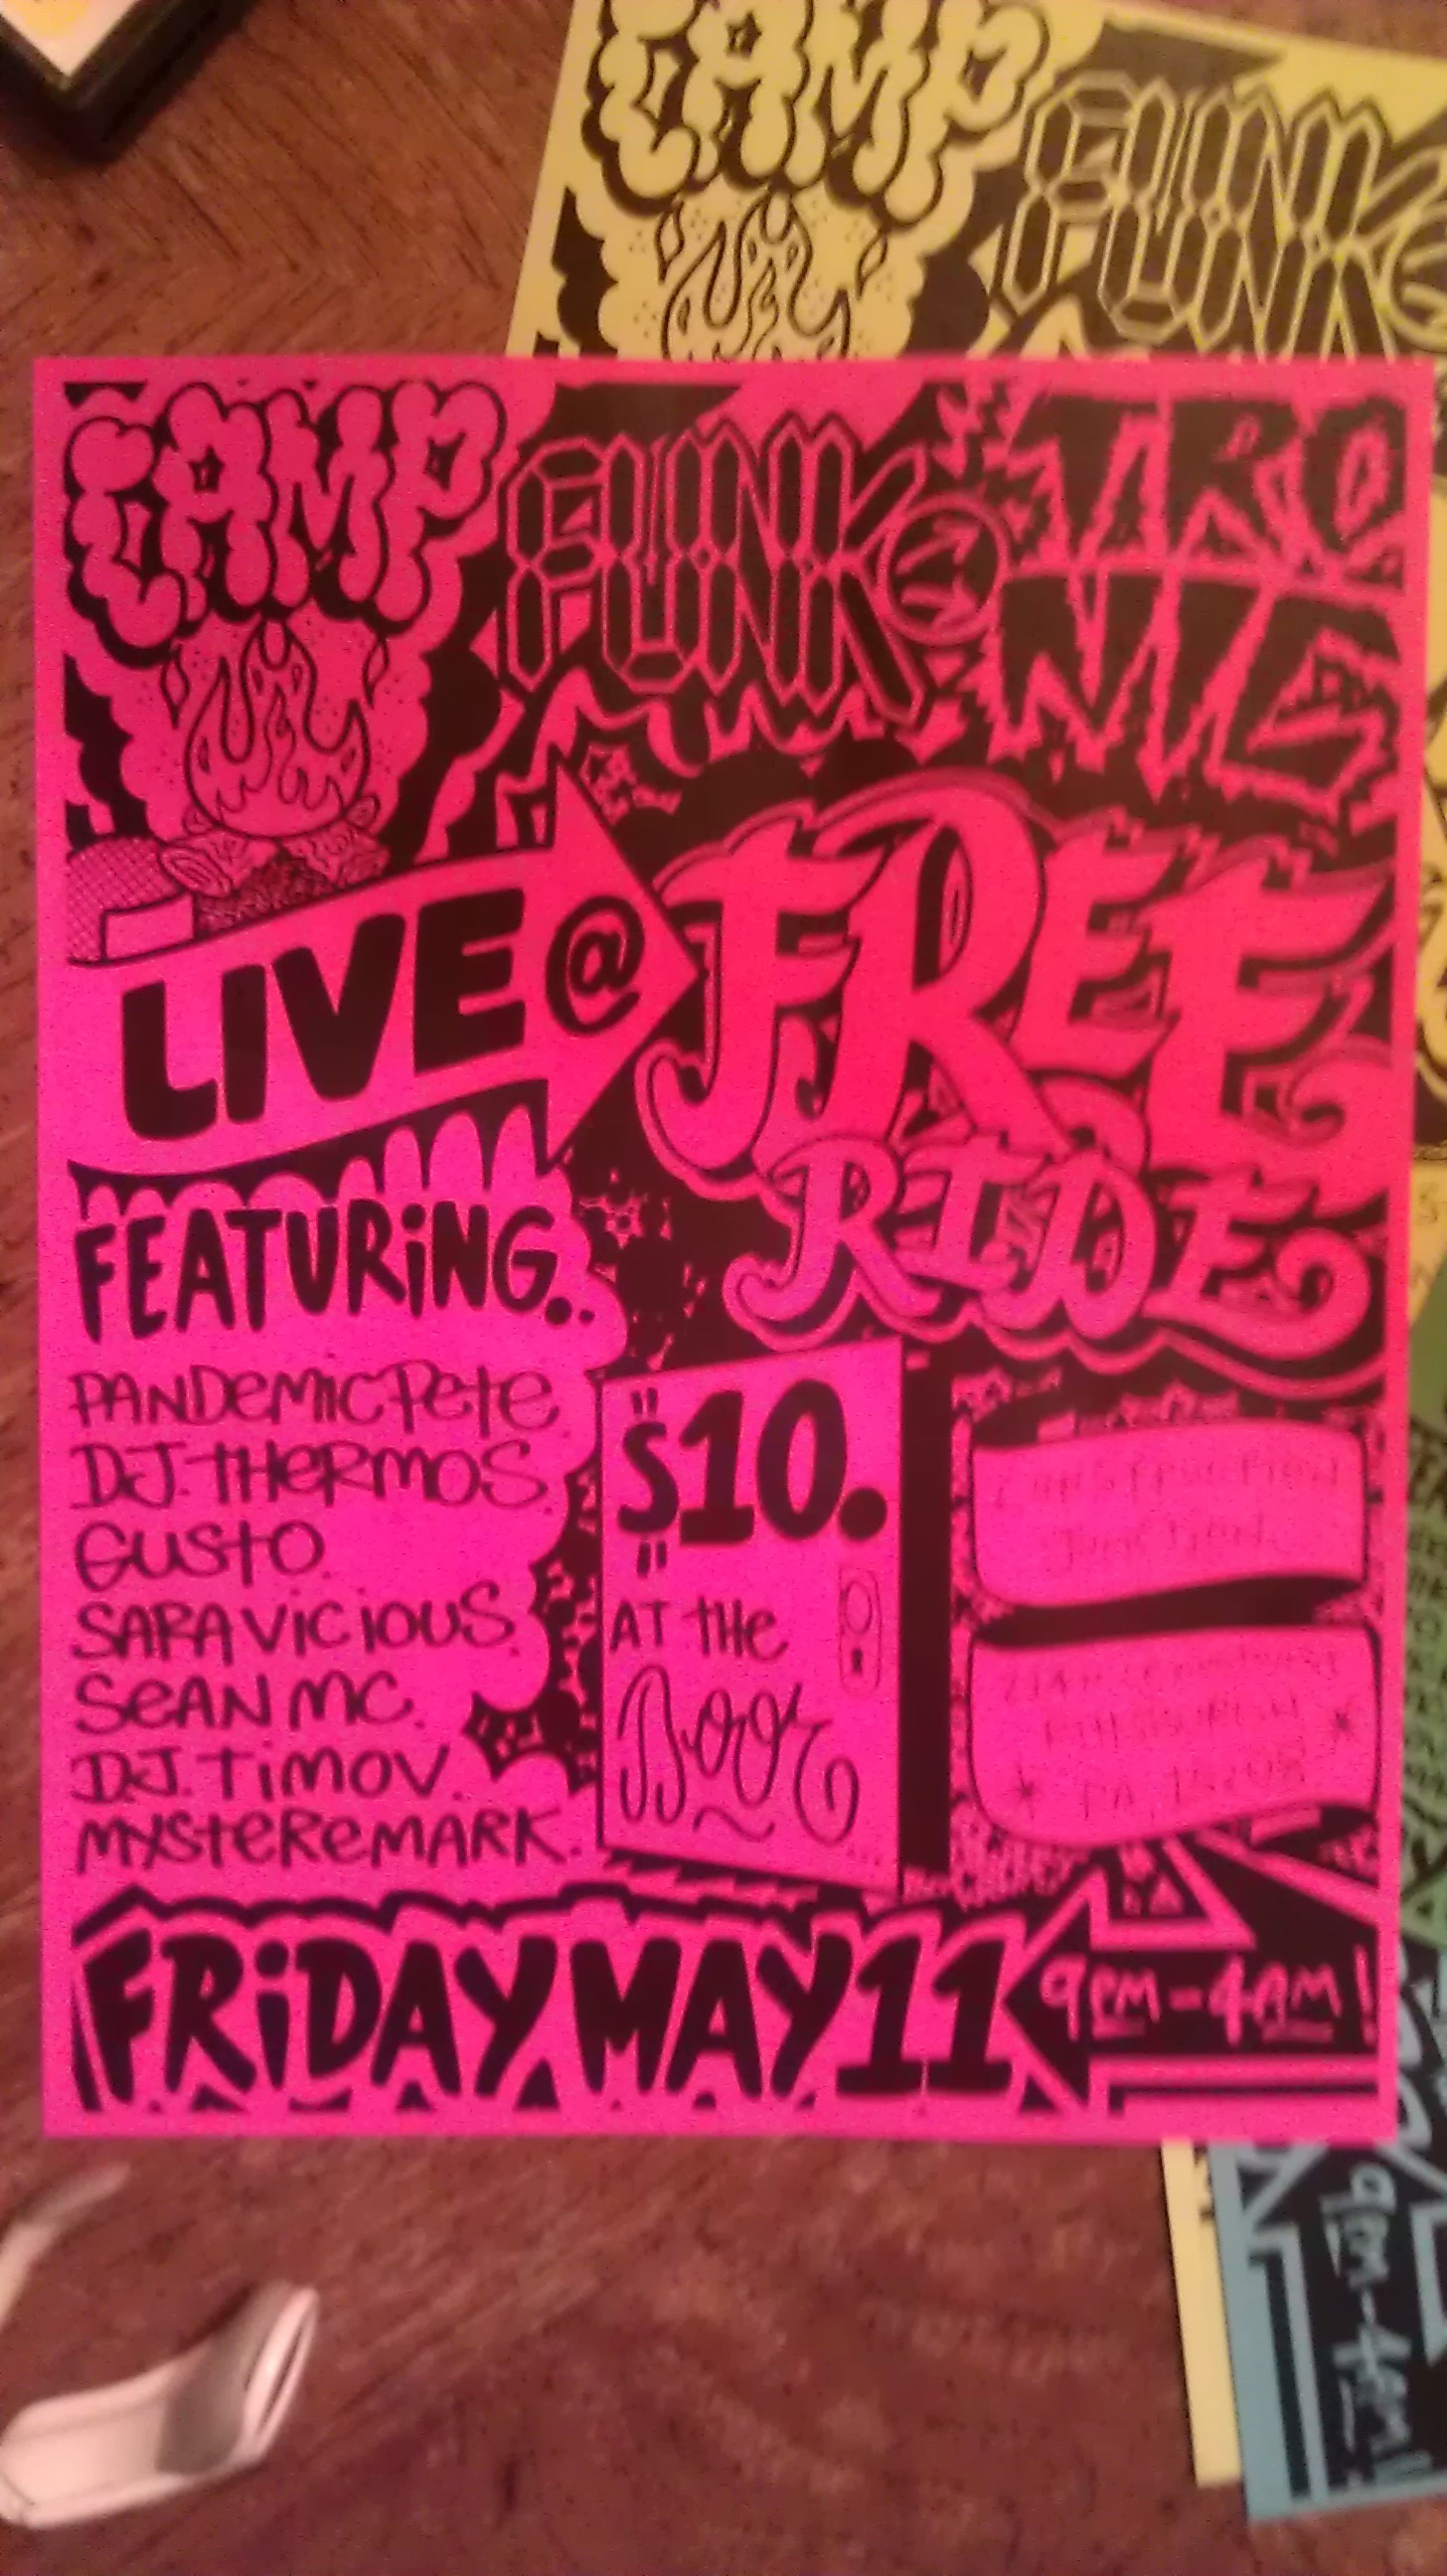 CAMP FUNK
CAMP FUNK© TRO
NIC
LIVE @ FREE
RIDE
FEATURING..
PANDEMIC Pete
DJ. tHeRMOS.
GUStO.
SARA VICIOUS.
SeAN MC.
DJ. TiMOV.
MYSteReMARK.
"$10."
AT tHe
Door
CONSTRUCTION
JUNCTION
PITTSBURGH
PA, 15208
FRiDAY MAY 11
9PM-4AM!
9PM-4AM!